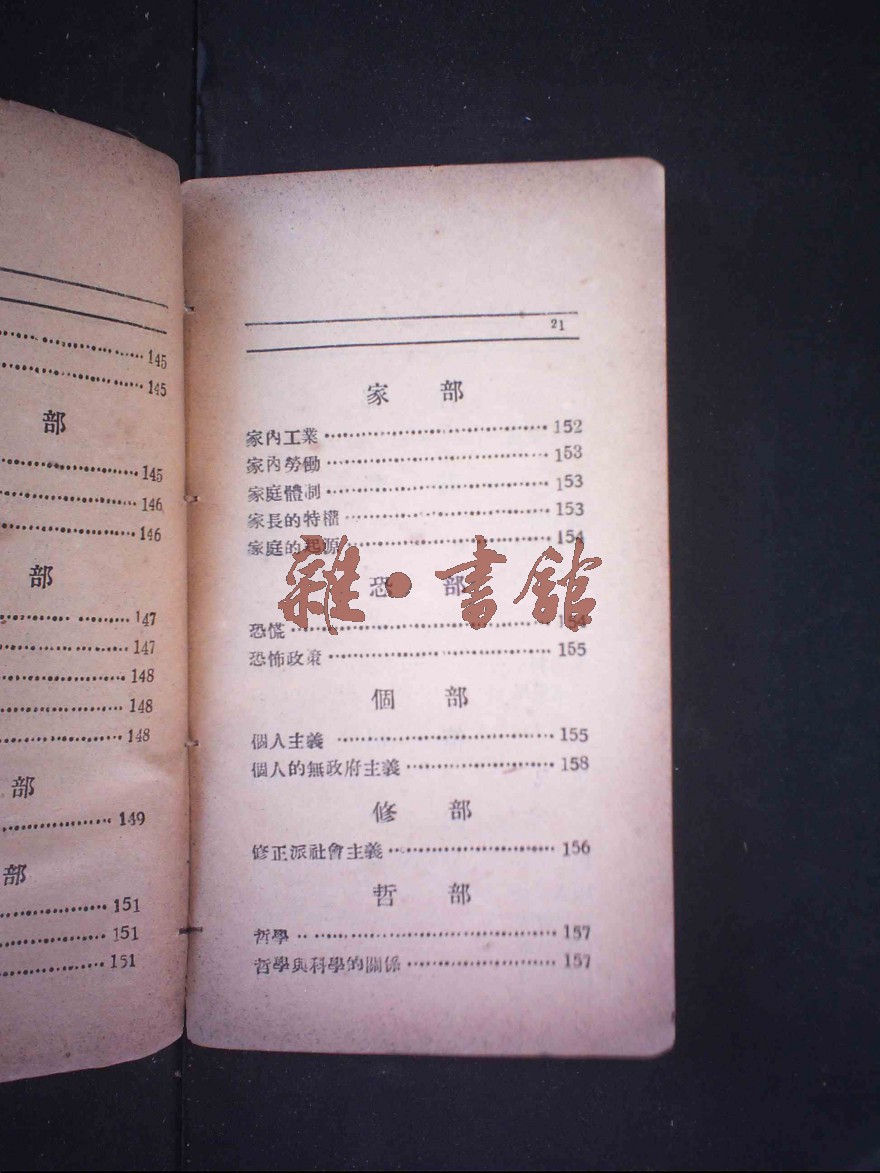 145
145
部
145
146
146
部
147
147
148
148
148
部
149
部
151
151
151
21
家 部
家內工業 152
家內勞働 153
家庭體制 153
家長的特權 153
家庭的起源 154
恐 部
恐慌 154
恐怖政策 155
個 部
個人主義 155
個人的無政府主義 158
修 部
修正派社會主義 156
哲 部
哲學 157
哲學與科學的關係 157
雜·書館